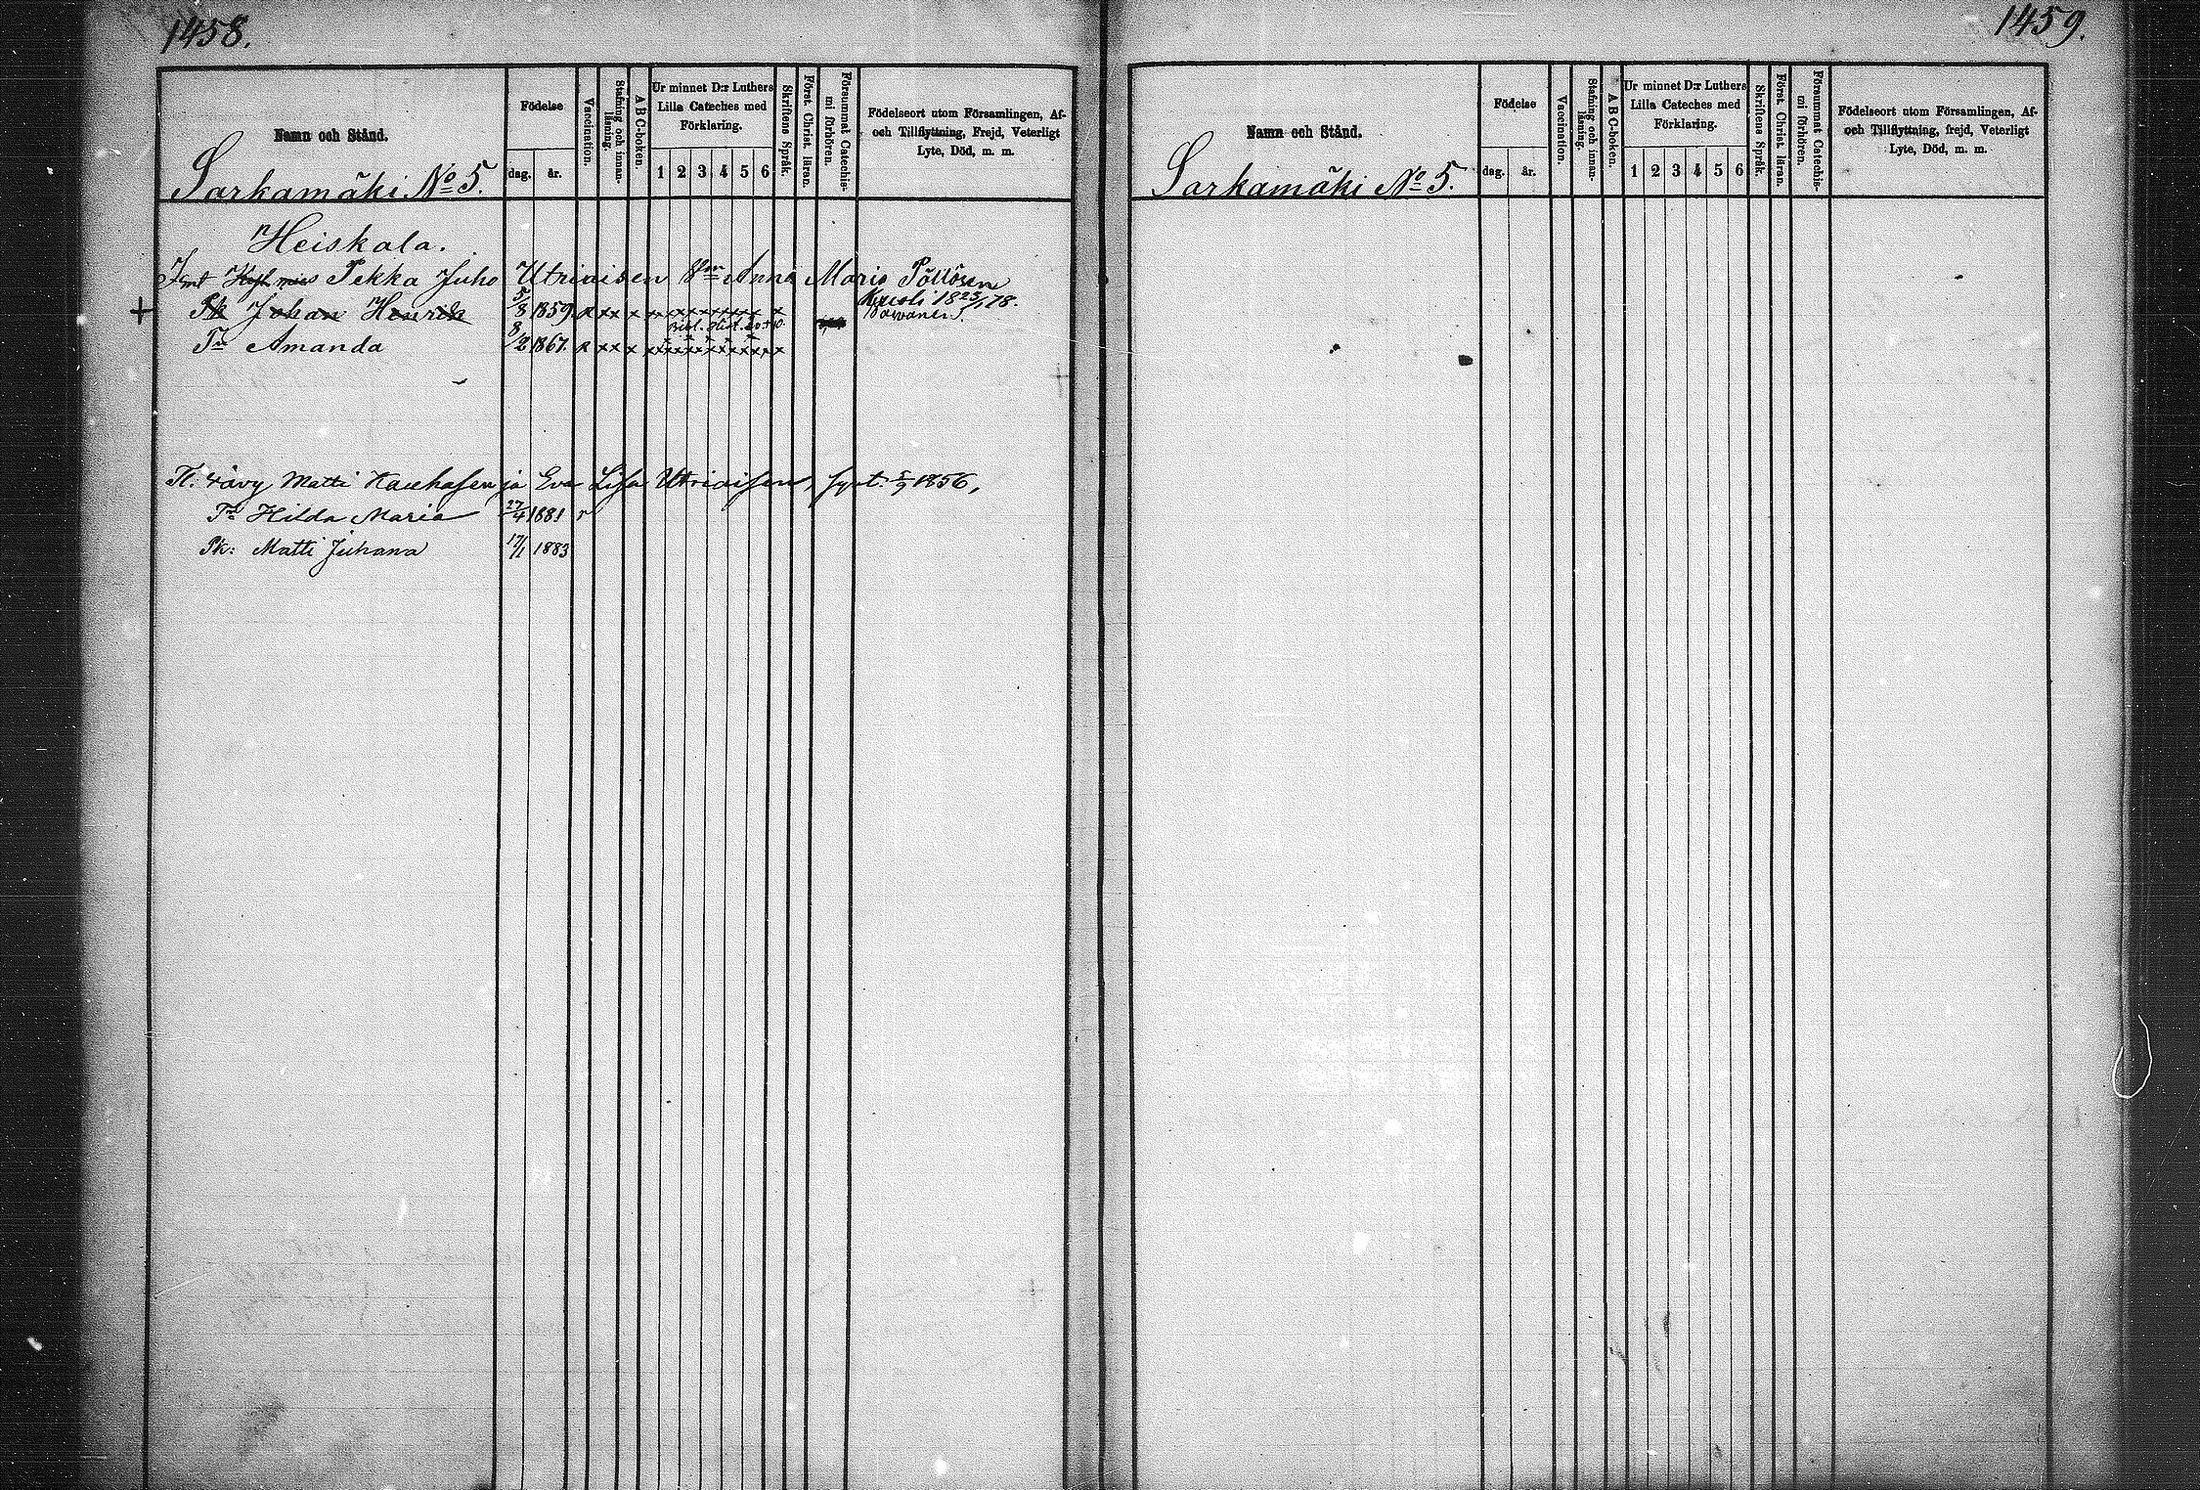 1458.
Namn och Stånd.
Födelse
dag.
år.
Vaccination.
Stafning och innan-
läsning.
A B C-boken.
Ur minnet D:r Luthers
Lilla Cateches med
Förklaring.
1 2 3 4 5 6
Skriftens Språk.
Först. Christ. läran.
Försummat Catechis-
mi förhören.
Födelseort utom Församlingen, Af-
och Tillflyttning, Frejd, Veterligt
Lyte, Död, m. m.
Sarkamäki No 5.
Heiskala.
Pekka Juho Utriaisen Anna Maria Pöllösen
+ Pk Johan Henrik 5/8 1859. x xx x x Kuoli 18 23/1 78.
Bibl. Hist.
Tr Amanda 8/2 1867. x xx x
Matti Kauhasen ja Eva Lisa Utriaisen, synt. 5/9 1856,
Tr Hilda Maria 27/4 1881 r
Pk: Matti Juhana 17/1 1883
1459.
Namn och Stånd.
Födelse
dag.
år.
Vaccination.
Stafning och innan-
läsning.
A B C-boken.
Ur minnet D:r Luthers
Lilla Cateches med
Förklaring.
1 2 3 4 5 6
Skriftens Språk.
Först. Christ. läran.
Försummat Catechis-
mi förhören.
Födelseort utom Församlingen, Af-
och Tillflyttning, frejd, Veterligt
Lyte, Död, m. m.
Sarkamäki No 5.